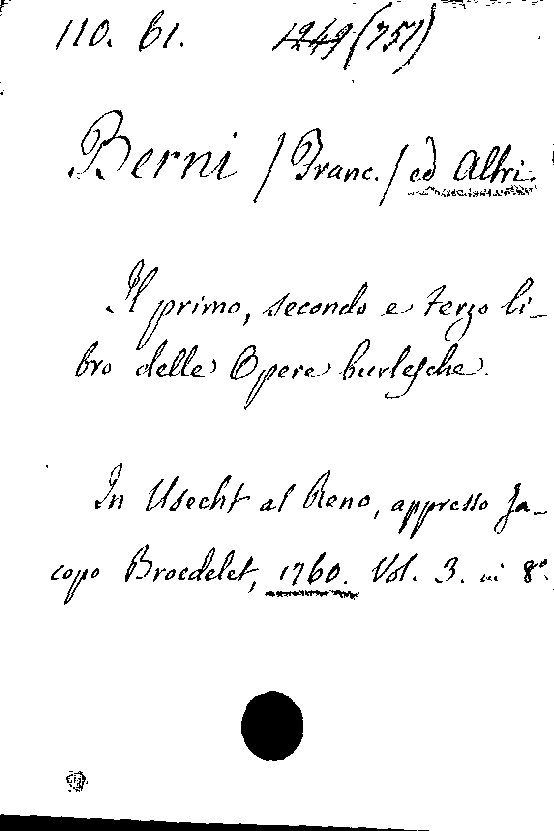 110. 61. 1249 (757)
Berni / Franc. / ed Altri.
Il primo, secondo e terzo li-
bro delle Opere burlesche.
In Usecht al Reno, appresso Ja-
copo Broedelet, 1760. Vol. 3. in 8º.